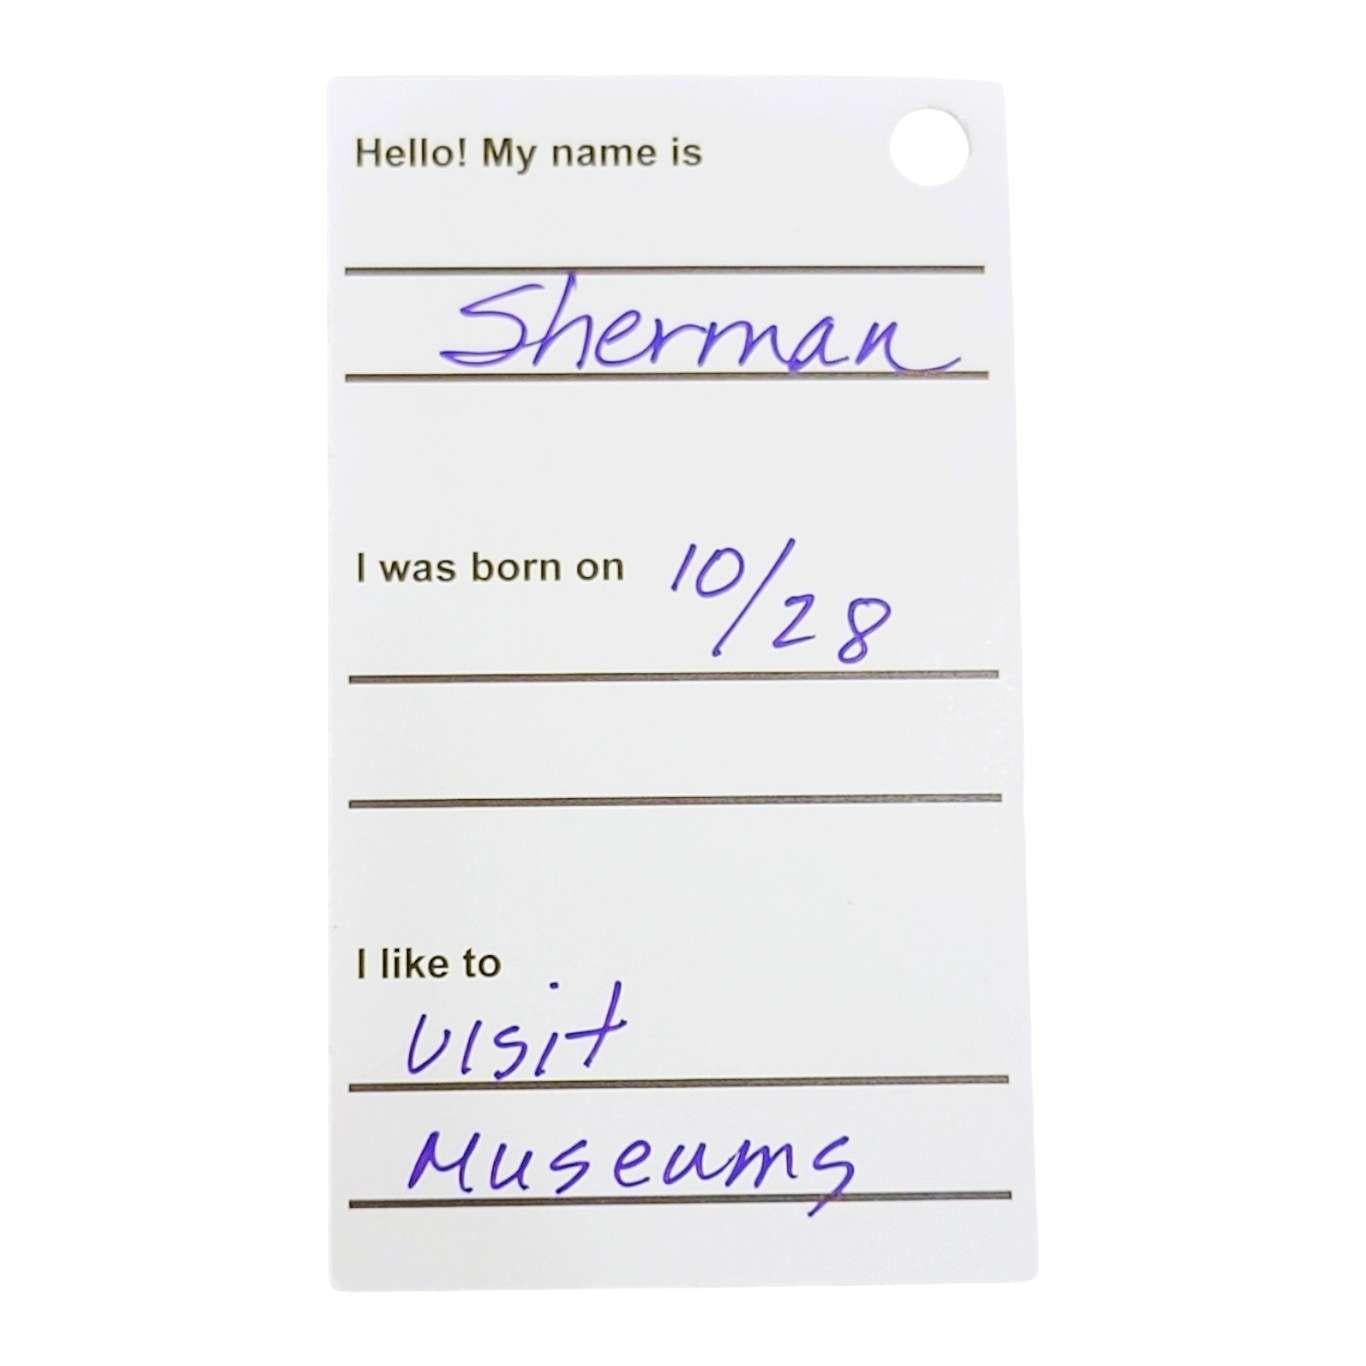 Hello! My name is
Sherman
I was born on 10/28
I like to
visit
Museums